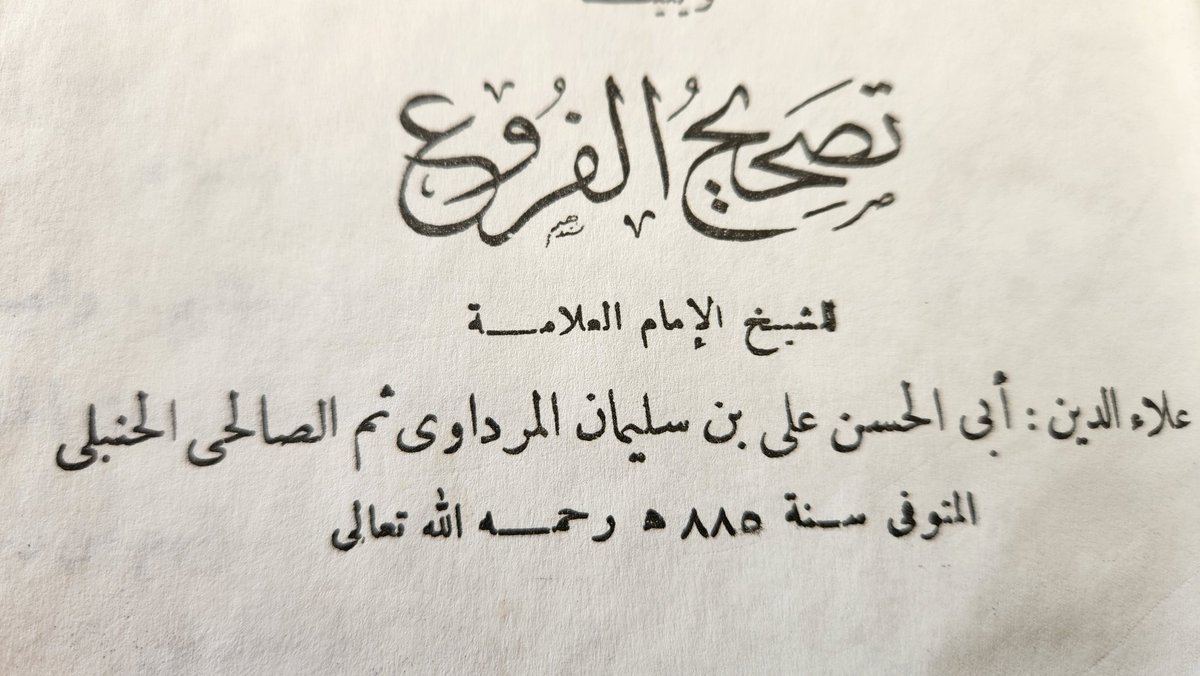 تصحيح الفروع
للشيخ الإمام العلامة
علاء الدين : أبى الحسن على بن سليمان المرداوى ثم الصالحى الحنبلى
المتوفى سنة ٨٨٥ ه رحمه الله تعالى